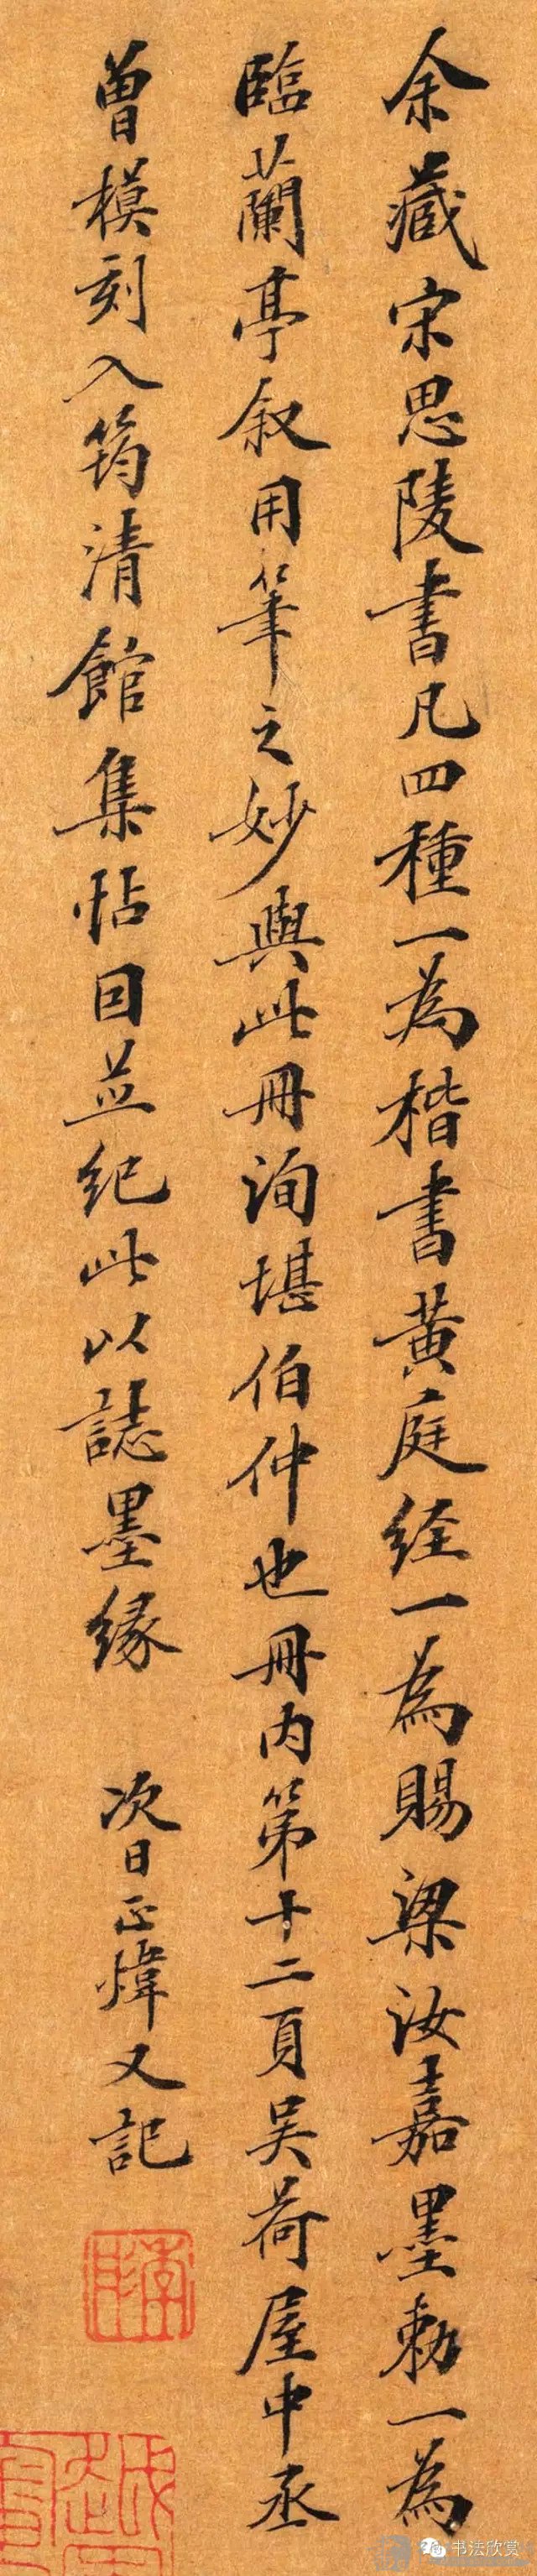 余藏宋思陵書凡四種一為楷書黃庭経一為賜梁汝嘉墨勅一為
臨蘭亭叙用筆之妙與此冊洵堪伯仲也冊内第十二頁吴荷屋中丞
曽模刻入筠清館集帖因並纪此以誌墨緣
次日正煒又記
书法欣赏